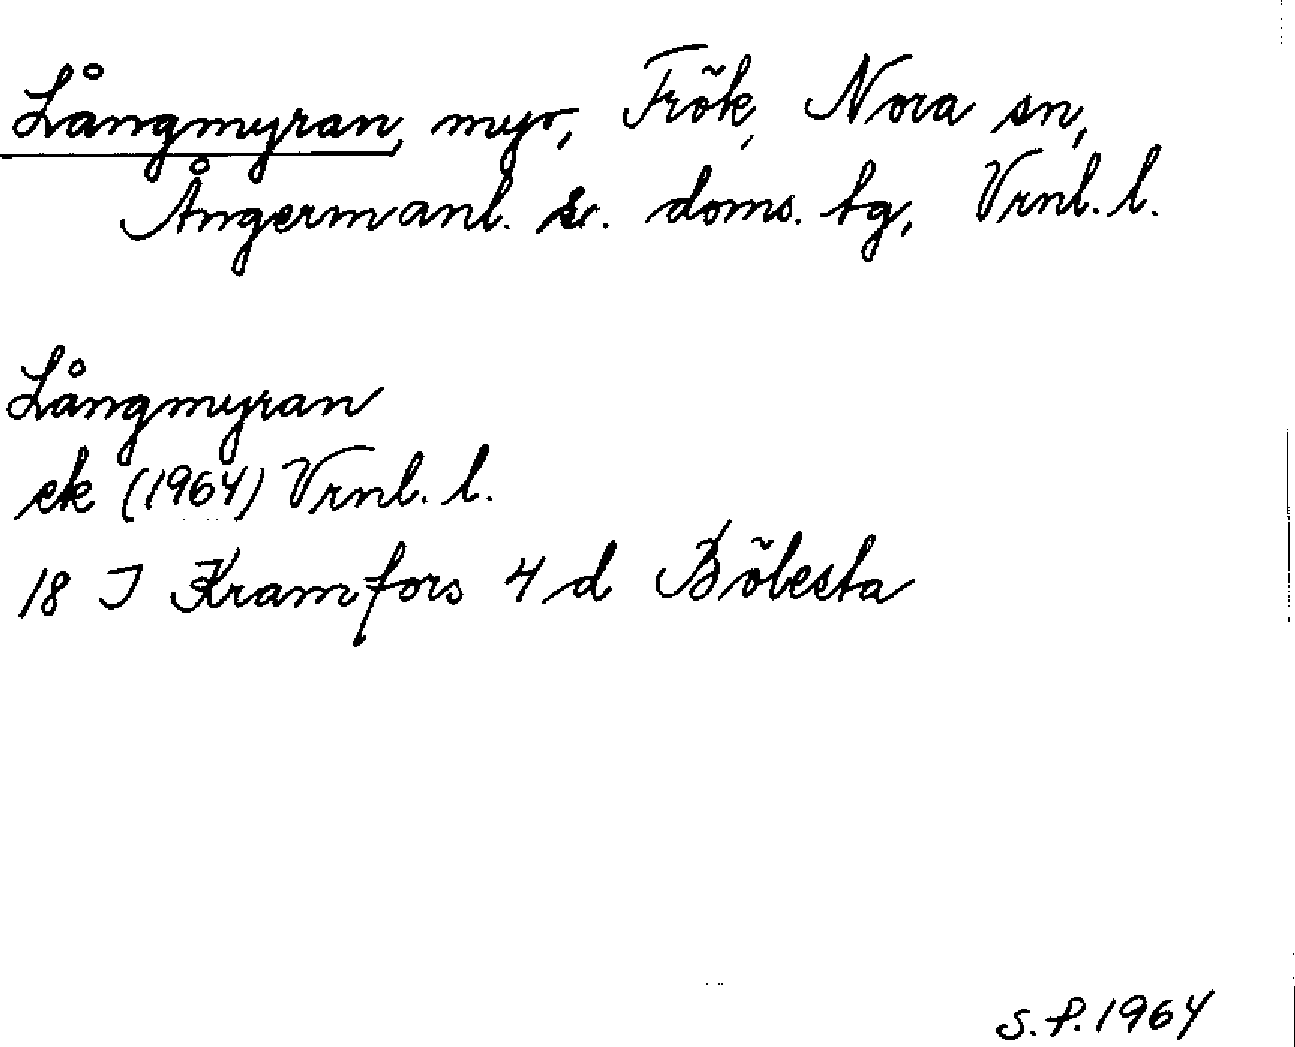 Långmyran, myr, Frök, Nora sn,
Ångermanl. s. doms. tg, Vrnl. l.
Långmyran
ek (1964) Vrnl. l.
18 I Kramfors 4 d Bölesta
S. P. 1964